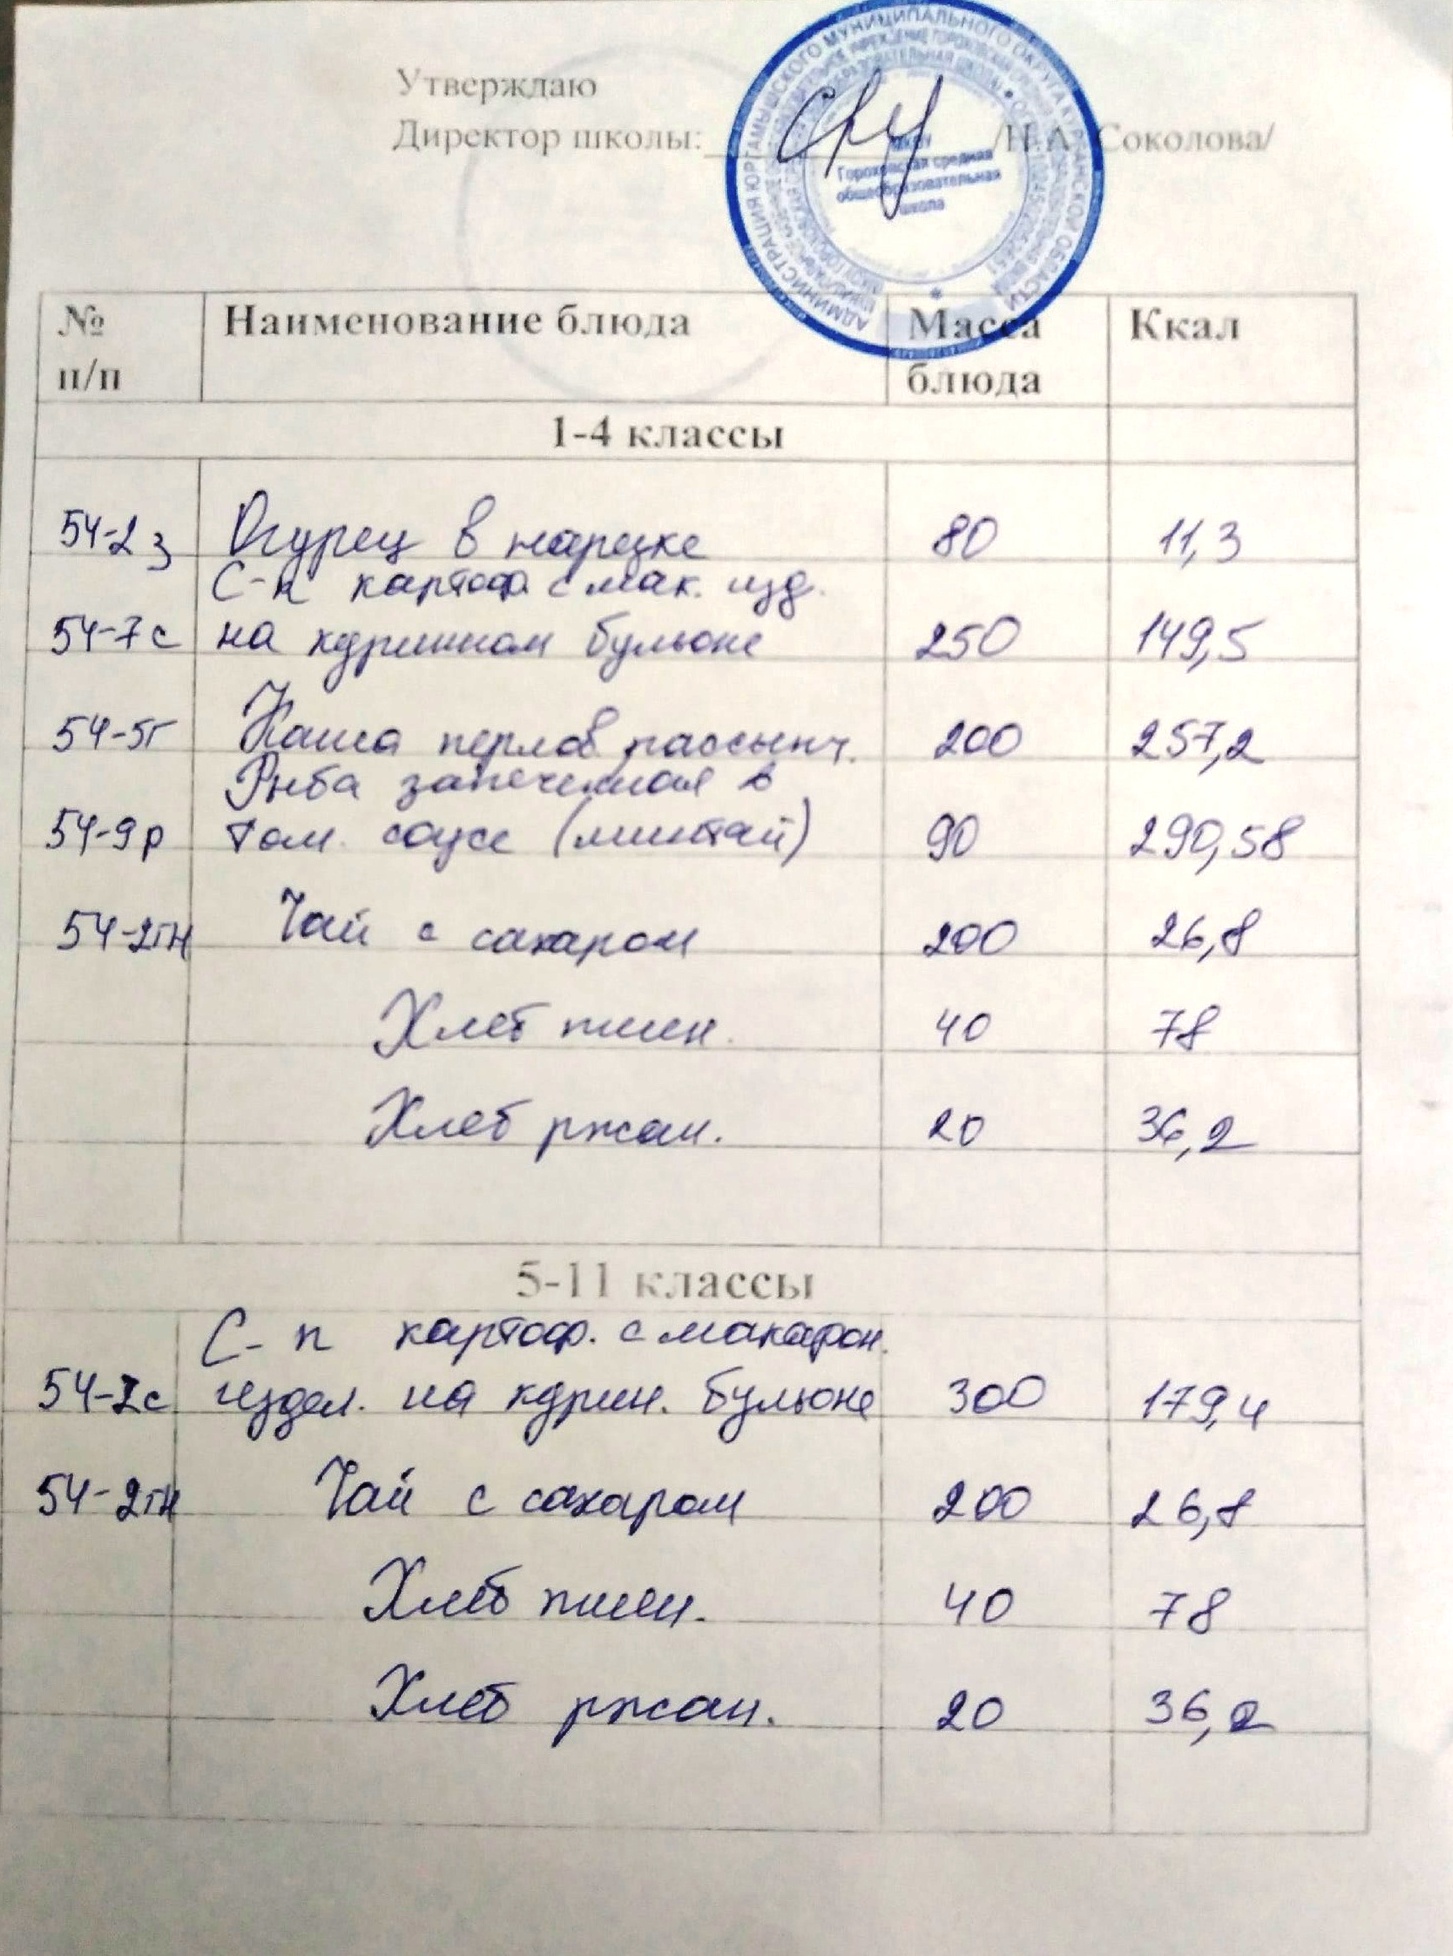 Утверждаю
Директор школы: /Н.А. Соколова/
АДМИНИСТРАЦИЯ ЮРГАМЫШСКОГО МУНИЦИПАЛЬНОГО ОКРУГА КУРГАНСКОЙ ОБЛАСТИ
МКОУ
Гороховская средняя
общеобразовательная
школа
№ Наименование блюда Масса Ккал
п/п блюда
1-4 классы
54-2з Огурец в нарезке 80 11,3
С-п картоф. с мак. изд.
54-7с на курином бульоне 250 149,5
54-5г Каша перлов. рассыпч. 200 257,2
Рыба запеченная в
54-9р том. соусе (минтай) 90 290,58
54-2гн Чай с сахаром 200 26,8
Хлеб пшен. 40 78
Хлеб ржан. 20 36,2
5-11 классы
С-п картоф. с макарон.
54-7с издел. на курин. бульоне 300 179,4
54-2гн Чай с сахаром 200 26,8
Хлеб пшен. 40 78
Хлеб ржан. 20 36,2